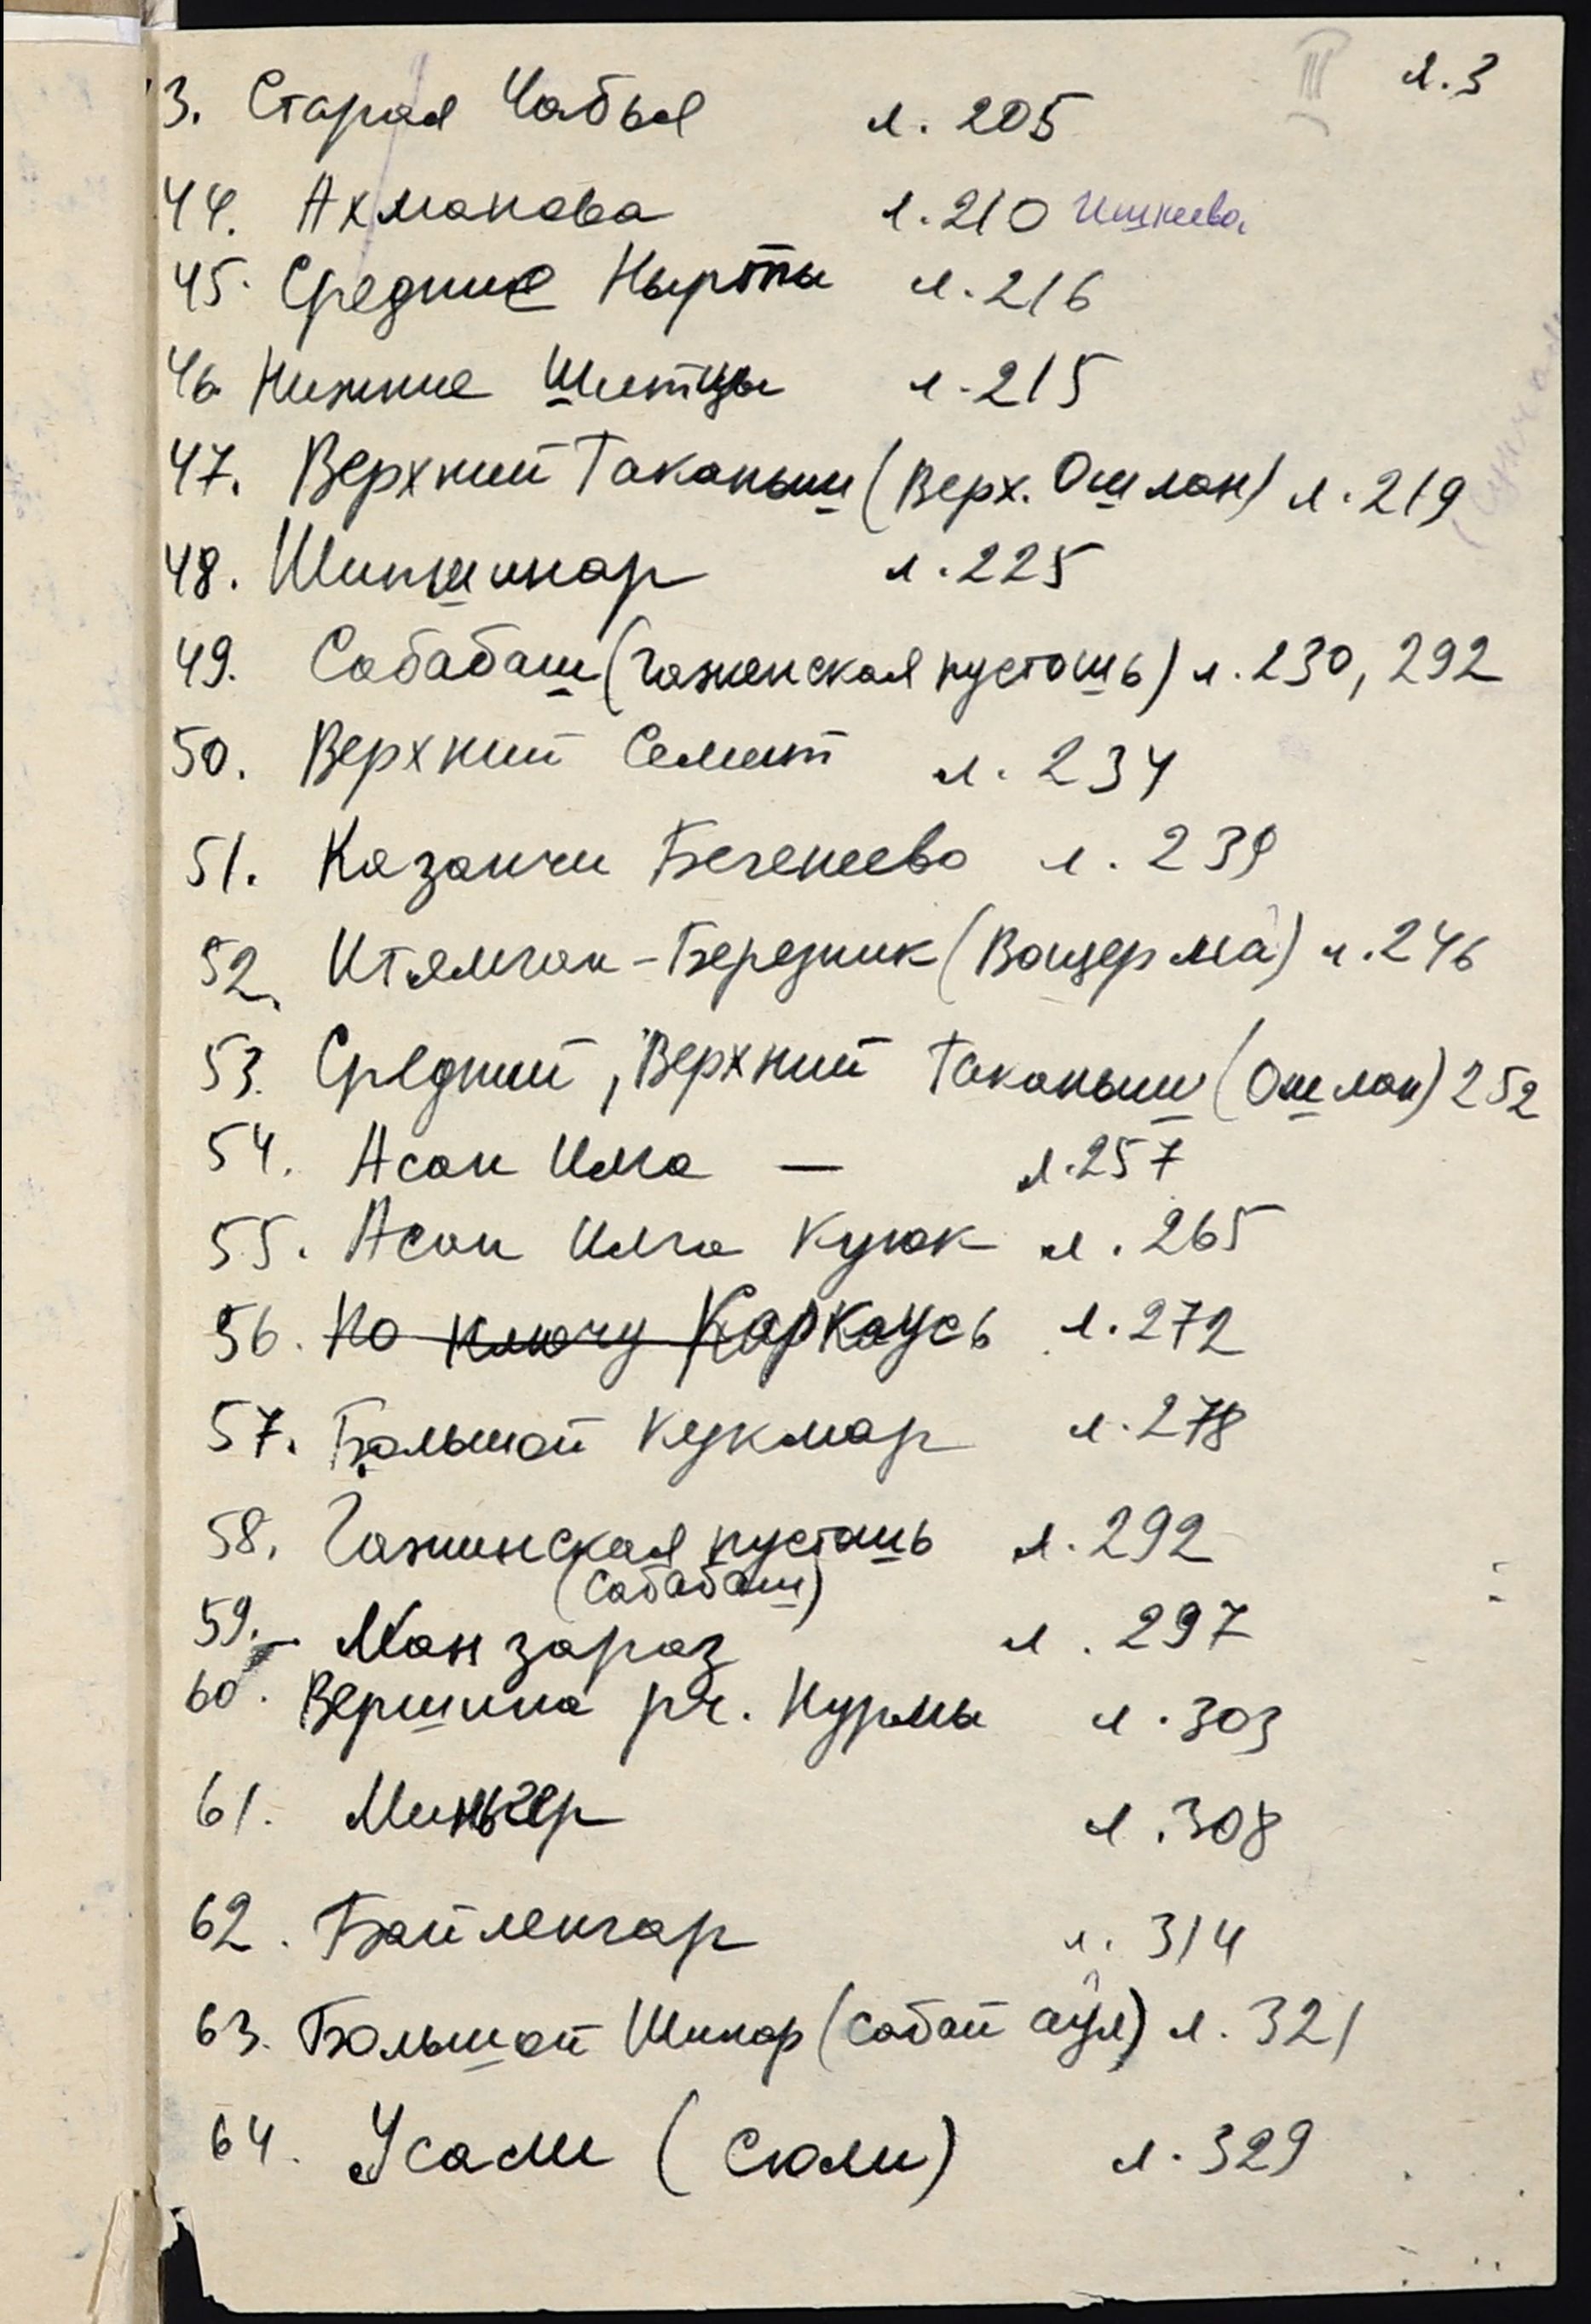 III л.3
3. Старая Чабья л. 205
44. Ахманова л.210 Ишкеево.
45. Средние Нырты л.216
46 Нижние Шитцы л.215
47. Верхний Таканыш (Верх. Ошлан) л.219
48. Шипшинар л.225
49. Сабабаш (Чаженская пустошь) л.230, 292
50. Верхний Семит л. 234
51. Казанчи Бегенеево л. 239
52. Итямган-Березник (Вощерма) л.246
53. Средний, Верхний Таканыш (Ошлан) 252
54. Асан Илга — л.257
55. Асан Илга Куюк л. 265
56. По ключу Каркаусь л.272
57. Большой Кукмар л.278
58. Чажинская пустошь л.292
(Сабабаш)
59. Манзараз л. 297
60. Вершина рч. Нурмы л.303
61. Миньгер л.308
62. Байлянгар л. 314
63. Большой Шинар (Сабай аул) л. 321
64. Усали (Сюли) л.329